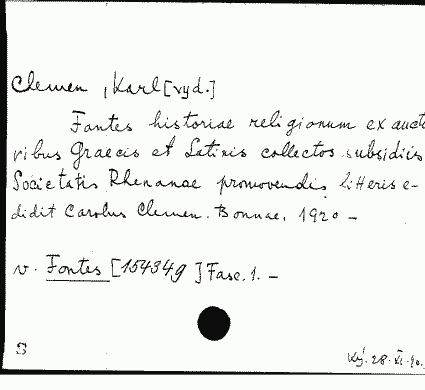 Clemen, Karl [vyd.]
Fontes historiae religionum ex aucto
ribus Graecis et Latinis collectos subsidiis
Societatis Rhenanae promovendis litteris e-
didit Carolus Clemen. Bonnae, 1920 -
v. Fontes [154349] Fasc. 1. -
S
28. XI.